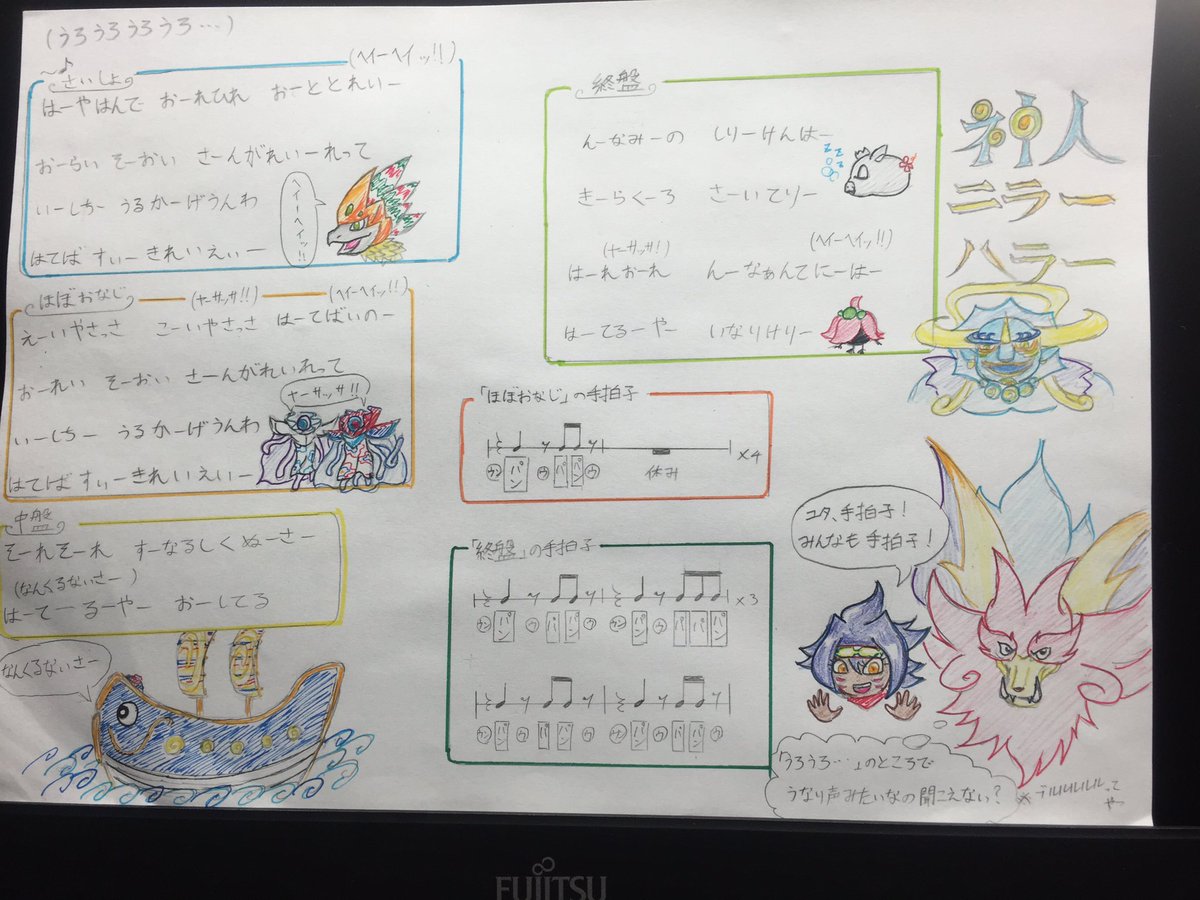 (うろうろうろうろ…)
～♪
さいしょ
(ヘイーヘイッ!!)
はーやはんで おーれひれ おーととれいー
おーらい そーおい さーんがれいーれって
いーしちー うるかーげうんわ
はてば すぃーきれいえぃー
ヘイーヘイッ!!
ほぼおなじ
(ヤーサッサ!!)
(ヘイーヘイッ!!)
えーいやさっさ こーいやさっさ はーてばいのー
おーれい そーおい さーんがれいれって
いーしちー うるかーげうんわ
はてば すぃーきれいえいー
ヤーサッサ!!
中盤
そーれそーれ すーなるしくぬーさー
(なんくるないさー)
はーてーるーやー おーしてる
なんくるないさー
終盤
んーなみーの しりーけんはー
きーらくーろ さーいてりー
zzz
(ヤーサッサ!)
(ヘイーヘイッ!!)
はーれおーれ んーなぁんてにーはー
はーてるーやー いなりけりー
「ほぼおなじ」の手拍子
×4
ウン パン ウ パ パン ウ
休み
「終盤」の手拍子
×3
神人
ニラー
ハラー
コタ、手拍子!
みんなも手拍子!
「うろうろ…」のところで
うなり声みたいなの聞こえない?
※ブルルルルルって
やつ
FUJITSU